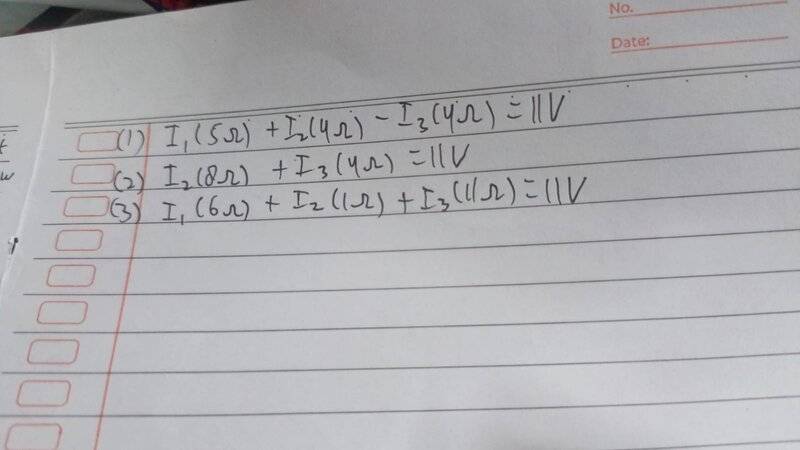 No.
Date:
(1) I₁(5Ω) + I₂(4Ω) - I₃(4Ω) = 11V
(2) I₂(8Ω) + I₃(4Ω) = 11V
(3) I₁(6Ω) + I₂(1Ω) + I₃(11Ω) = 11V